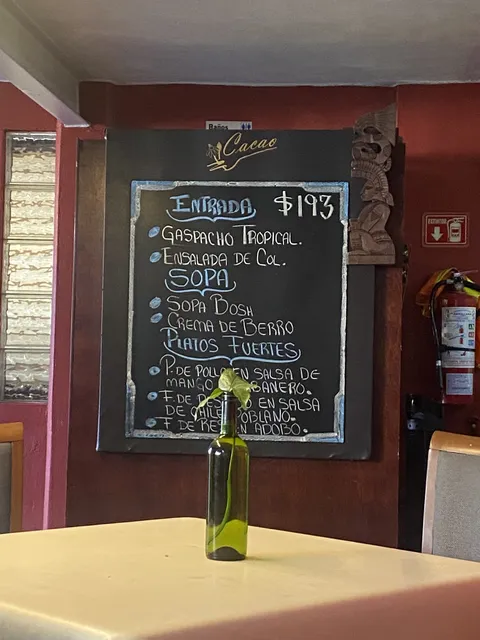 Cacao
ENTRADA $193
GASPACHO TROPICAL.
ENSALADA DE COL.
SOPA
SOPA BOSH
CREMA DE BERRO
PLATOS FUERTES
P. DE POLLO EN SALSA DE
MANGO
F. DE EN SALSA
DE
F DE RES EN ADOBO.
EXTINTOR